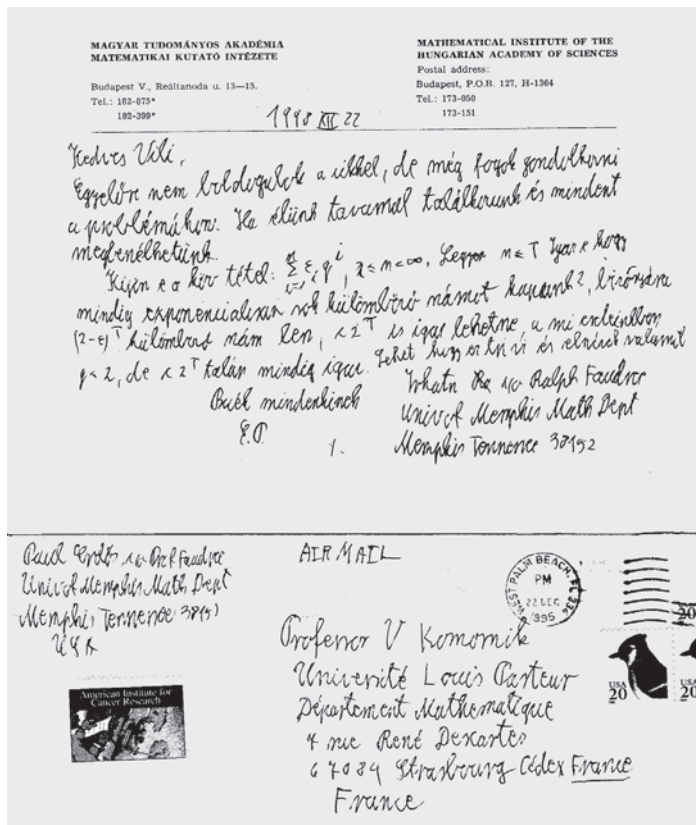 MAGYAR TUDOMÁNYOS AKADÉMIA
MATEMATIKAI KUTATÓ INTÉZETE
Budapest V., Reáltanoda u. 13—15.
Tel.: 182-875*
182-399*
MATHEMATICAL INSTITUTE OF THE
HUNGARIAN ACADEMY OF SCIENCES
Postal address:
Budapest, P.O.B. 127, H-1364
Tel.: 173-050
173-151
XII 22
Kedves Vili,
Egyelőre nem boldogulok a cikkel, de még fogok gondolkozni
a problémákon. Ha élünk tavasszal találkozunk és mindent
megbeszélhetünk.
tétel: Legyen Igaz e hogy
mindig exponenciálisan sok különböző számot kapunk?,
(2-ε)^T szám < 2^T is igaz lehetne, a mi
q < 2, de < 2^T talán mindig igaz. Lehet hogy és valamit
Ralph Faudree
Univ of Memphis Math Dept
Memphis Tennessee 38152
mindenkinek
E.P.
1.
Paul Erdős c/o Prof Faudree
Univ of Memphis Math Dept
Memphis Tennessee 38152
USA
American Institute for
Cancer Research
AIR MAIL
WEST PALM BEACH, FL 334
PM
22 DEC
1995
20
USA
20
USA
Professor V Komornik
Université Louis Pasteur
Département Mathematique
7 rue René Descartes
67084 Strasbourg Cédex France
France